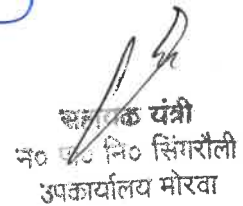 सहायक यंत्री
न० पा० नि० सिंगरौली
उपकार्यालय मोरवा